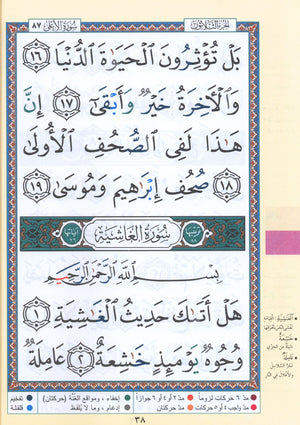 الجزء الثلاثون
سورة الأعلى ٨٧
بَلْ تُؤْثِرُونَ الْحَيَوٰةَ الدُّنْيَا ١٦
وَالْآخِرَةُ خَيْرٌ وَأَبْقَىٰٓ ١٧ إِنَّ
هَـٰذَا لَفِى الصُّحُفِ الْأُولَىٰ
١٨ صُحُفِ إِبْرَٰهِيمَ وَمُوسَىٰ ١٩
سُورَةُ الغَاشِيَةِ
بِسْمِ اللَّهِ الرَّحْمَـٰنِ الرَّحِيمِ
هَلْ أَتَىٰكَ حَدِيثُ الْغَـٰشِيَةِ ١
وُجُوهٌ يَوْمَئِذٍ خَـٰشِعَةٌ ٢ عَامِلَةٌ
مدّ ٦ حركات لزوماً مدّ ٢ أو ٤ أو ٦ جوازاً إخفاء، ومواقع الغُنَّة (حركتان) تفخيم
مدّ واجب ٤ أو ٥ حركات مدّ حركتان إدغام، وما لا يُلفَظ قلقلة
٣٨